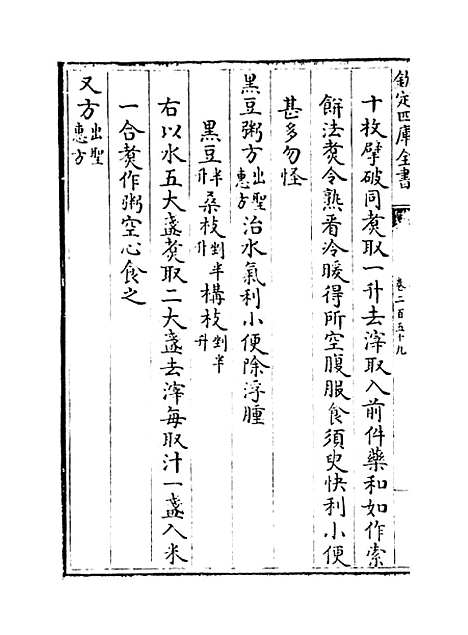 欽定四庫全書
卷二百五十九
十枚擘破同煑取一升去滓取入前件藥和如作索
餅法煑令熟看冷暖得所空腹服食須臾快利小便
甚多勿怪
黑豆粥方出聖惠方治水氣利小便除浮腫
黑豆半升桑枝剉半升構枝剉半升
右以水五大盞煑取二大盞去滓每取汁一盞入米
一合煑作粥空心食之
又方出聖惠方